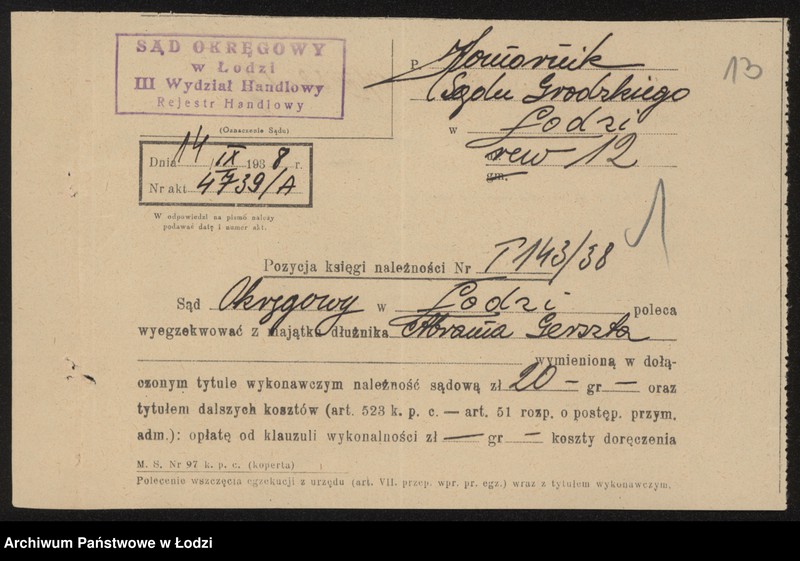 SĄD OKRĘGOWY
w Łodzi
III Wydział Handlowy
Rejestr Handlowy
(Oznaczenie Sądu)
P. Komornik
Sądu Grodzkiego
w Łodzi
rew 12
gm.
13
Dnia 14/IX 1938 r.
Nr akt 4739/A
W odpowiedzi na pismo należy
podawać datę i numer akt.
Pozycja księgi należności Nr T 143/38
Sąd Okręgowy w Łodzi poleca
wyegzekwować z majątku dłużnika Abrama Gerszta
wymienioną w dołą-
czonym tytule wykonawczym należność sądową zł 20 — gr — oraz
tytułem dalszych kosztów (art. 523 k. p. c. — art. 51 rozp. o postęp. przym.
adm.): opłatę od klauzuli wykonalności zł — gr — koszty doręczenia
M. S. Nr 97 k. p. c. (koperta)
Polecenie wszczęcia egzekucji z urzędu (art. VII. przep. wpr. pr. egz.) wraz z tytułem wykonawczym.
Archiwum Państwowe w Łodzi